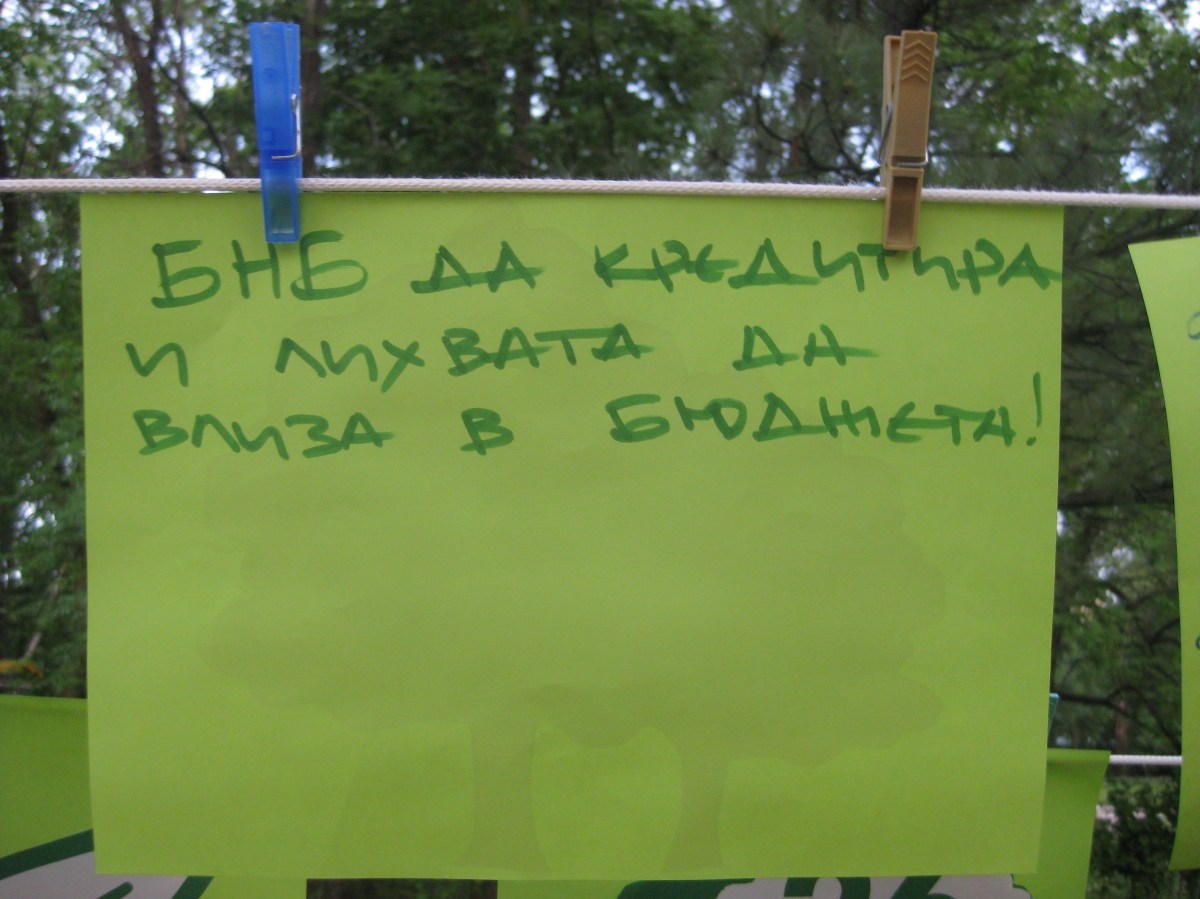 БНБ ДА КРЕДИТИРА
И ЛИХВАТА ДА
ВЛИЗА В БЮДЖЕТА!